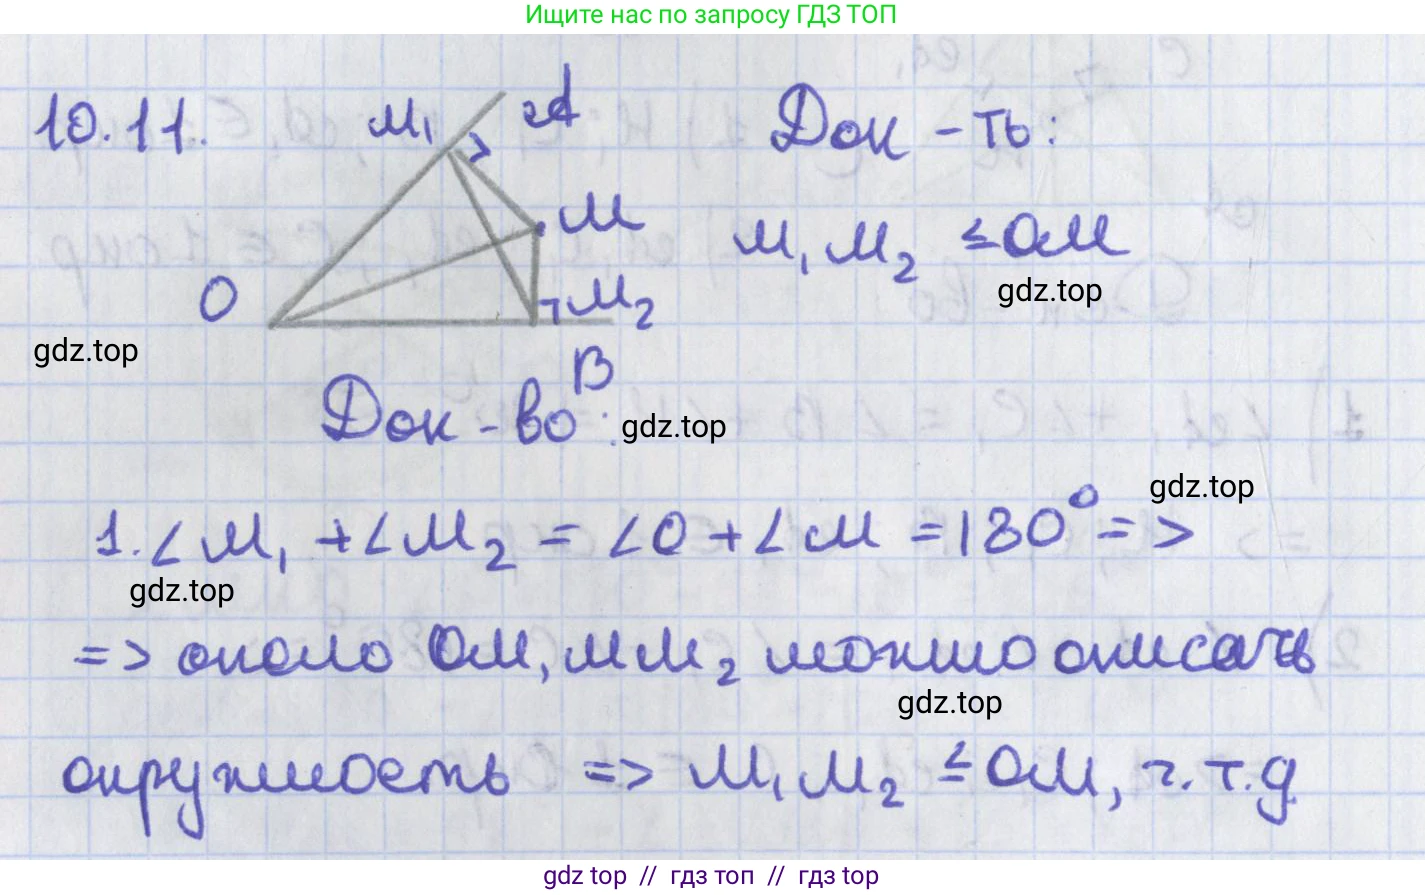 Ищите нас по запросу ГДЗ ТОП
10.11. M₁ A Док-ть:
M
M₁M₂ ≤ OM
O M₂
gdz.top
gdz.top
B
Док-во: gdz.top
gdz.top
1. ∠M₁ + ∠M₂ = ∠O + ∠M = 180° =>
gdz.top
=> около OM₁MM₂ можно описать
gdz.top
окружность => M₁M₂ ≤ OM, ч.т.д.
gdz top // гдз топ // гдз top